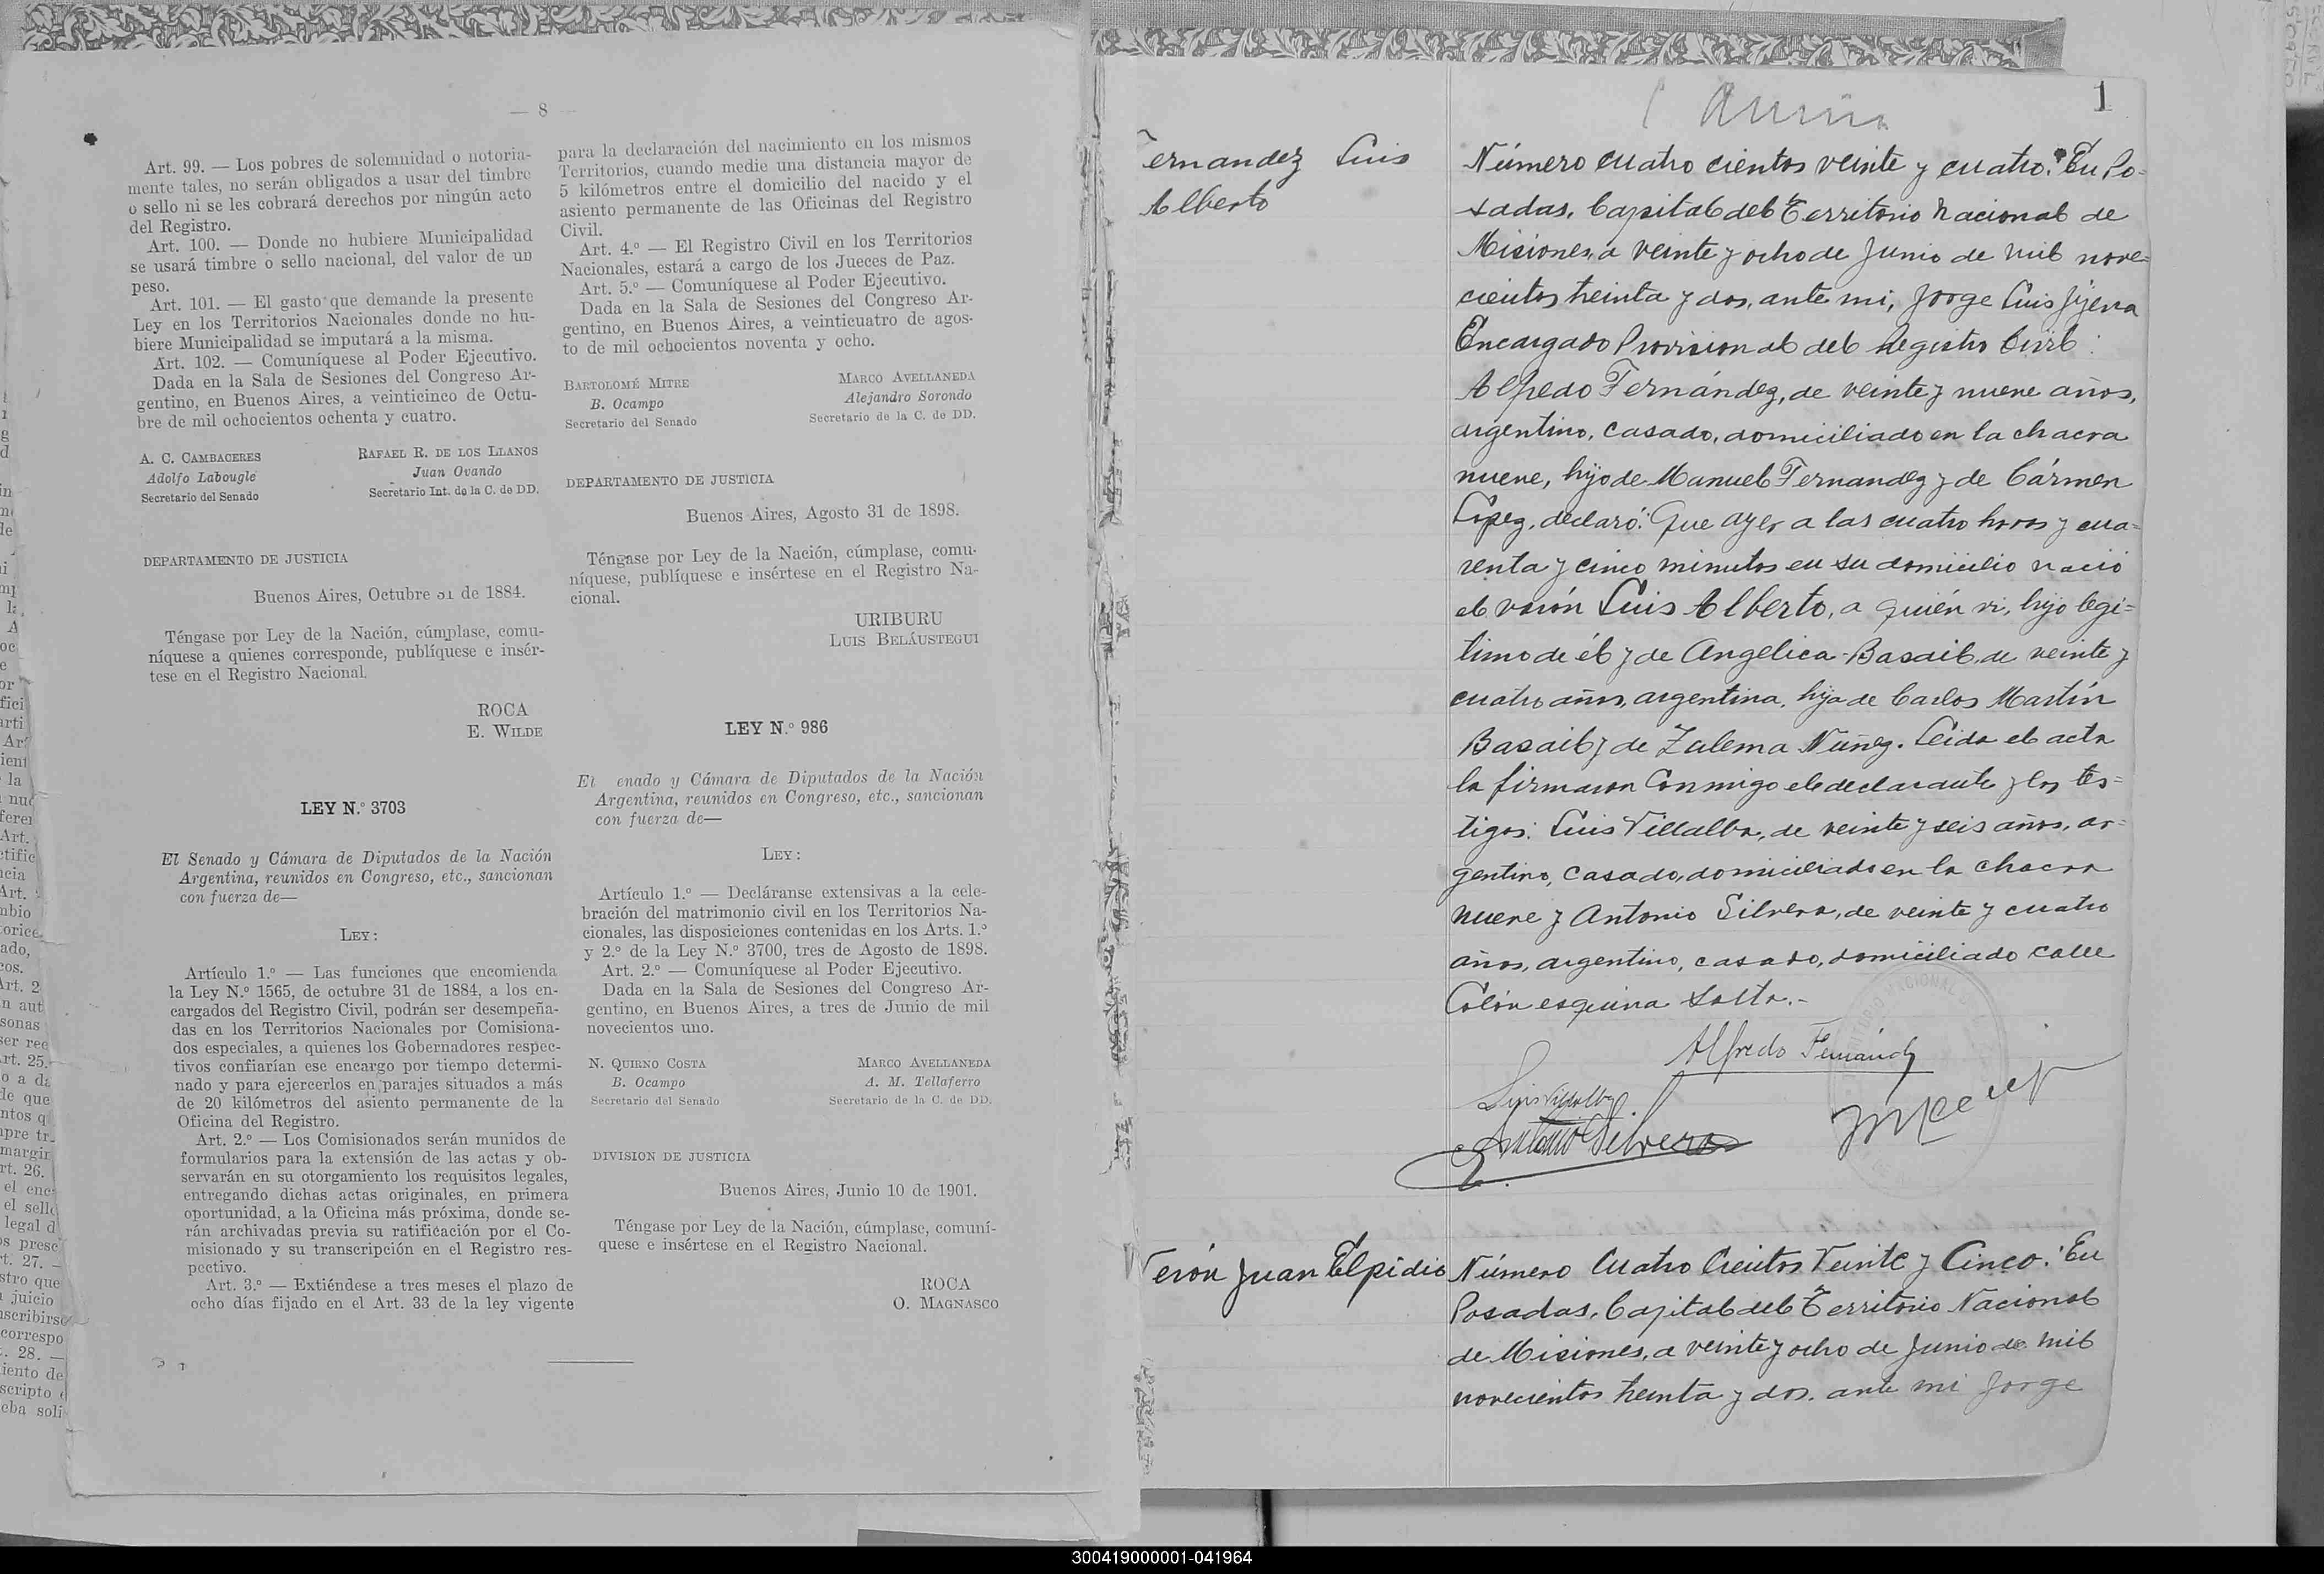 — 8 —
Art. 99. — Los pobres de solemnidad o notoria-
mente tales, no serán obligados a usar del timbre
o sello ni se les cobrará derechos por ningún acto
del Registro.
Art. 100. — Donde no hubiere Municipalidad
se usará timbre o sello nacional, del valor de un
peso.
Art. 101. — El gasto que demande la presente
Ley en los Territorios Nacionales donde no hu-
biere Municipalidad se imputará a la misma.
Art. 102. — Comuníquese al Poder Ejecutivo.
Dada en la Sala de Sesiones del Congreso Ar-
gentino, en Buenos Aires, a veinticinco de Octu-
bre de mil ochocientos ochenta y cuatro.
A. C. CAMBACERES
Adolfo Labougle
Secretario del Senado
RAFAEL R. DE LOS LLANOS
Juan Ovando
Secretario Int. de la C. de DD.
DEPARTAMENTO DE JUSTICIA
Buenos Aires, Octubre 31 de 1884.
Téngase por Ley de la Nación, cúmplase, comu-
níquese a quienes corresponde, publíquese e insér-
tese en el Registro Nacional.
ROCA
E. WILDE
LEY N.º 3703
El Senado y Cámara de Diputados de la Nación
Argentina, reunidos en Congreso, etc., sancionan
con fuerza de—
LEY:
Artículo 1.º — Las funciones que encomienda
la Ley N.º 1565, de octubre 31 de 1884, a los en-
cargados del Registro Civil, podrán ser desempeña-
das en los Territorios Nacionales por Comisiona-
dos especiales, a quienes los Gobernadores respec-
tivos confiarían ese encargo por tiempo determi-
nado y para ejercerlos en parajes situados a más
de 20 kilómetros del asiento permanente de la
Oficina del Registro.
Art. 2.º — Los Comisionados serán munidos de
formularios para la extensión de las actas y ob-
servarán en su otorgamiento los requisitos legales,
entregando dichas actas originales, en primera
oportunidad, a la Oficina más próxima, donde se-
rán archivadas previa su ratificación por el Co-
misionado y su transcripción en el Registro res-
pectivo.
Art. 3.º — Extiéndese a tres meses el plazo de
ocho días fijado en el Art. 33 de la ley vigente
para la declaración del nacimiento en los mismos
Territorios, cuando medie una distancia mayor de
5 kilómetros entre el domicilio del nacido y el
asiento permanente de las Oficinas del Registro
Civil.
Art. 4.º — El Registro Civil en los Territorios
Nacionales, estará a cargo de los Jueces de Paz.
Art. 5.º — Comuníquese al Poder Ejecutivo.
Dada en la Sala de Sesiones del Congreso Ar-
gentino, en Buenos Aires, a veinticuatro de agos-
to de mil ochocientos noventa y ocho.
BARTOLOMÉ MITRE
B. Ocampo
Secretario del Senado
MARCO AVELLANEDA
Alejandro Sorondo
Secretario de la C. de DD.
DEPARTAMENTO DE JUSTICIA
Buenos Aires, Agosto 31 de 1898.
Téngase por Ley de la Nación, cúmplase, comu-
níquese, publíquese e insértese en el Registro Na-
cional.
URIBURU
LUIS BELÁUSTEGUI
LEY N.º 986
El enado y Cámara de Diputados de la Nación
Argentina, reunidos en Congreso, etc., sancionan
con fuerza de—
LEY:
Artículo 1.º — Decláranse extensivas a la cele-
bración del matrimonio civil en los Territorios Na-
cionales, las disposiciones contenidas en los Arts. 1.º
y 2.º de la Ley N.º 3700, tres de Agosto de 1898.
Art. 2.º — Comuníquese al Poder Ejecutivo.
Dada en la Sala de Sesiones del Congreso Ar-
gentino, en Buenos Aires, a tres de Junio de mil
novecientos uno.
N. QUIRNO COSTA
B. Ocampo
Secretario del Senado
MARCO AVELLANEDA
A. M. Tellaferro
Secretario de la C. de DD.
DIVISION DE JUSTICIA
Buenos Aires, Junio 10 de 1901.
Téngase por Ley de la Nación, cúmplase, comuní-
quese e insértese en el Registro Nacional.
ROCA
O. MAGNASCO
1
Fernandez Luis
Alberto
Número cuatro cientos veinte y cuatro: En Po-
sadas, Capital del Territorio Nacional de
Misiones, a veinte y ocho de Junio de mil nove-
cientos treinta y dos, ante mi, Jorge Luis Jijena
Encargado Provisional del Registro Civil:
Alfredo Fernández, de veinte y nueve años,
argentino, casado, domiciliado en la chacra
nueve, hijo de Manuel Fernandez y de Cármen
López, declaró: Que ayer a las cuatro horas y cua-
renta y cinco minutos en su domicilio nació
el varón Luis Alberto, a quién vi, hijo legi-
timo de él y de Angelica Basail, de veinte y
cuatro años, argentina, hija de Carlos Martín
Basail y de Zulema Nuñez. Leida el acta
la firmaron conmigo el declarante y los tes-
tigos: Luis Villalba, de veinte y seis años, ar-
gentino, casado, domiciliado en la chacra
nueve y Antonio Silvera, de veinte y cuatro
años, argentino, casado, domiciliado calle
Colón esquina Salta.-
Alfredo Fernández
Luis Villalba
Antonio Silvera
Verón Juan Elpidio
Número Cuatro Cientos Veinte y Cinco: En
Posadas, Capital del Territorio Nacional
de Misiones, a veinte y ocho de Junio de mil
novecientos treinta y dos. ante mi Jorge
300419000001-041964